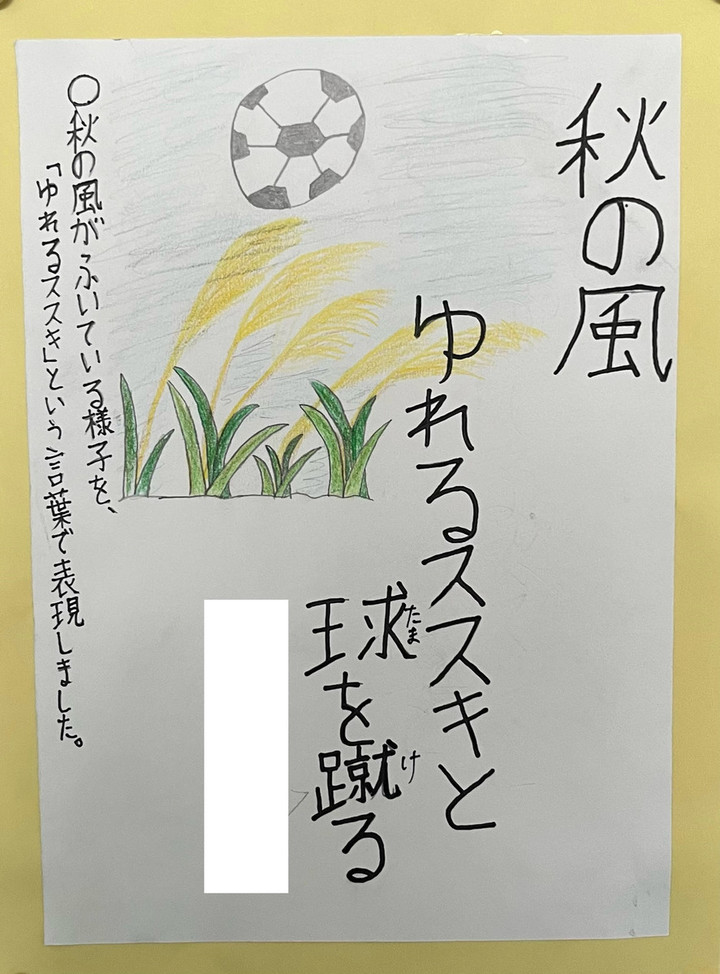 秋の風
ゆれるススキと
球を蹴る
たま
け
○秋の風がふいている様子を、
「ゆれるススキ」という言葉で表現しました。